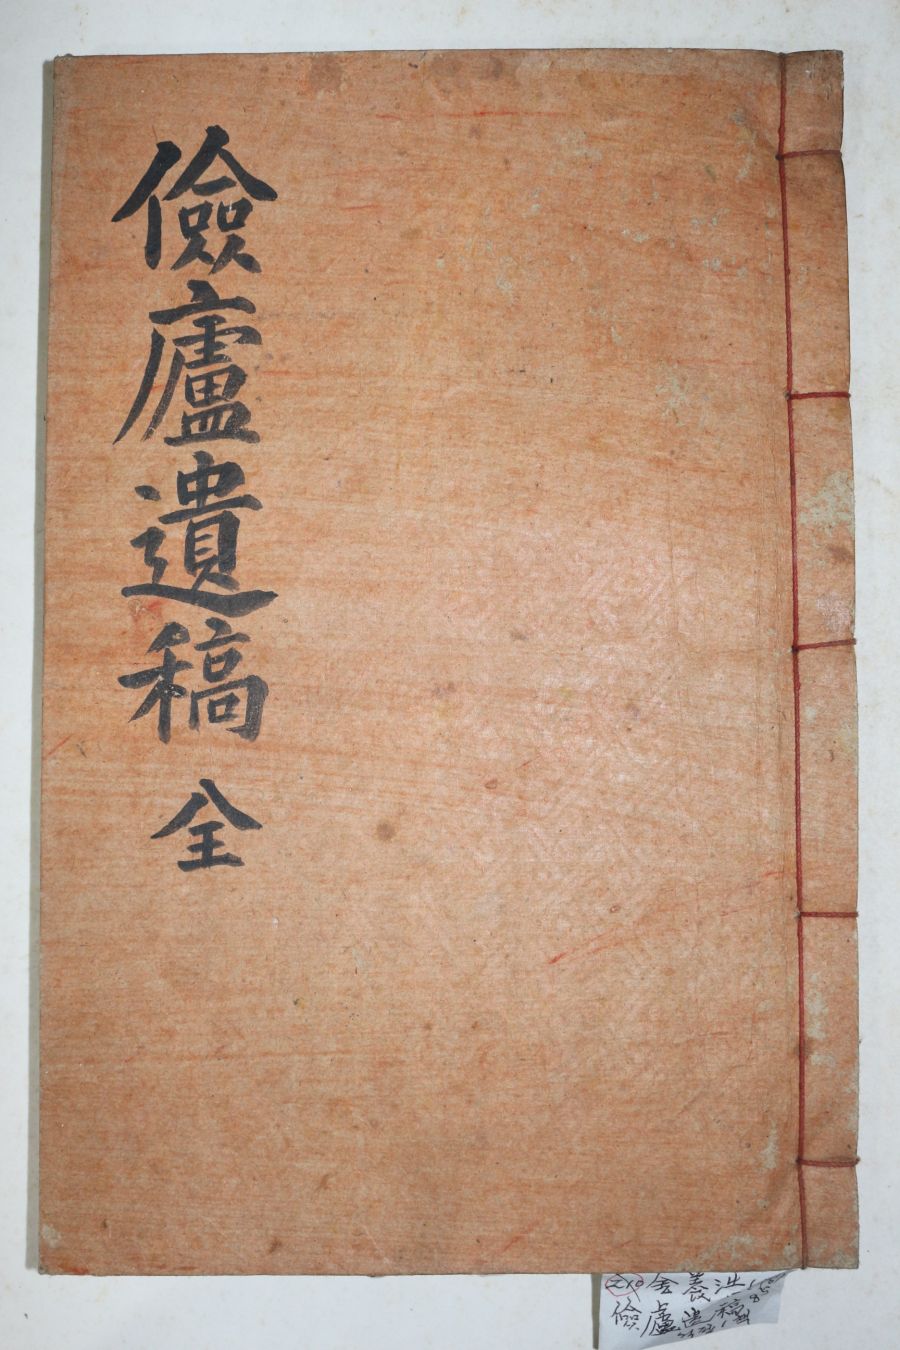 儉廬遺稿 全
金養洪
儉廬遺稿